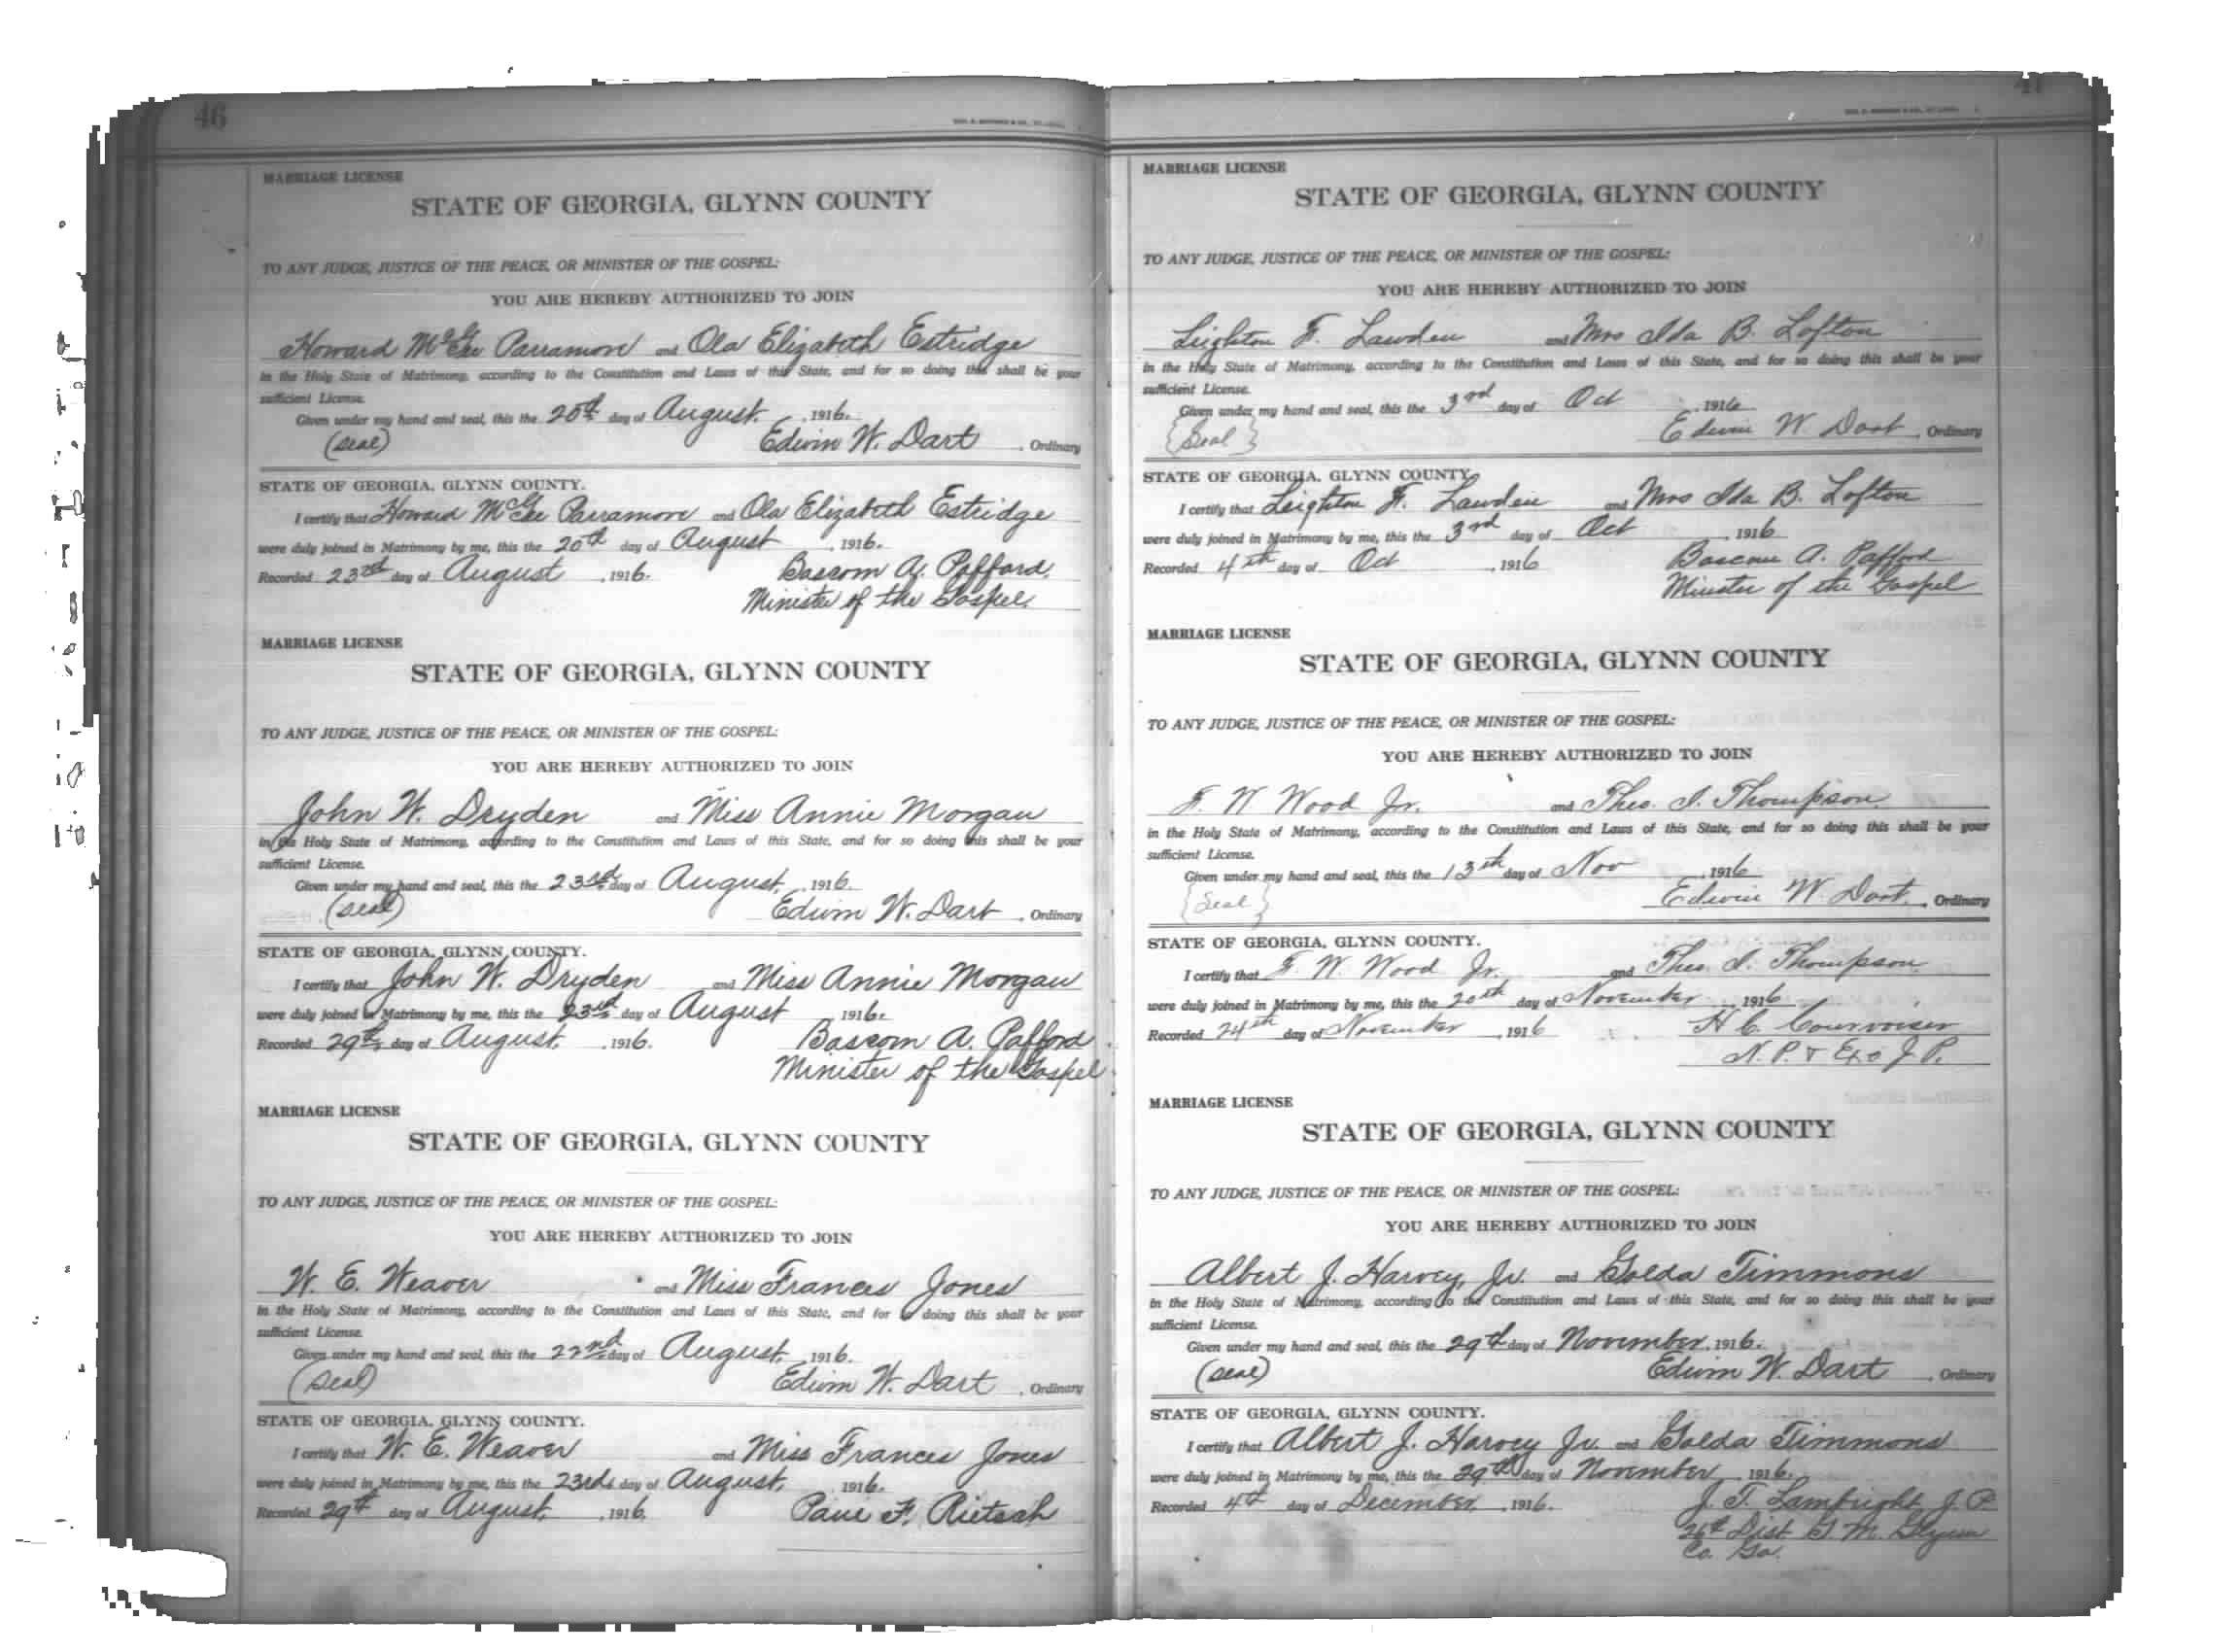 46
MARRIAGE LICENSE
STATE OF GEORGIA, GLYNN COUNTY
TO ANY JUDGE, JUSTICE OF THE PEACE, OR MINISTER OF THE GOSPEL:
YOU ARE HEREBY AUTHORIZED TO JOIN
Howard McGee Parramore and Ola Elizabeth Estridge
in the Holy State of Matrimony, according to the Constitution and Laws of this State, and for so doing this shall be your
sufficient License.
Given under my hand and seal, this the 20th day of August. , 1916.
(seal) Edwin W. Dart , Ordinary
STATE OF GEORGIA, GLYNN COUNTY.
I certify that Howard McGee Parramore and Ola Elizabeth Estridge
were duly joined in Matrimony by me, this the 20th day of August , 1916.
Recorded 23rd day of August , 1916. Bascom A. Pafford.
Minister of the Gospel.
MARRIAGE LICENSE
STATE OF GEORGIA, GLYNN COUNTY
TO ANY JUDGE, JUSTICE OF THE PEACE, OR MINISTER OF THE GOSPEL:
YOU ARE HEREBY AUTHORIZED TO JOIN
John W. Dryden and Miss Annie Morgan
in the Holy State of Matrimony, according to the Constitution and Laws of this State, and for so doing this shall be your
sufficient License.
Given under my hand and seal, this the 23rd day of August, , 1916.
(seal) Edwin W. Dart , Ordinary
STATE OF GEORGIA, GLYNN COUNTY.
I certify that John W. Dryden and Miss Annie Morgan
were duly joined in Matrimony by me, this the 23rd day of August 1916.
Recorded 29th day of August, , 1916. Bascom A. Pafford
Minister of the Gospel
MARRIAGE LICENSE
STATE OF GEORGIA, GLYNN COUNTY
TO ANY JUDGE, JUSTICE OF THE PEACE, OR MINISTER OF THE GOSPEL:
YOU ARE HEREBY AUTHORIZED TO JOIN
W. E. Weaver and Miss Frances Jones
in the Holy State of Matrimony, according to the Constitution and Laws of this State, and for so doing this shall be your
sufficient License.
Given under my hand and seal, this the 22nd day of August, , 1916.
(seal) Edwin W. Dart , Ordinary
STATE OF GEORGIA, GLYNN COUNTY.
I certify that W. E. Weaver and Miss Frances Jones
were duly joined in Matrimony by me, this the 23rd day of August, , 1916.
Recorded 29th day of August, , 1916. F. Rietsah
47
MARRIAGE LICENSE
STATE OF GEORGIA, GLYNN COUNTY
TO ANY JUDGE, JUSTICE OF THE PEACE, OR MINISTER OF THE GOSPEL:
YOU ARE HEREBY AUTHORIZED TO JOIN
Leighton F. Lawden and Mrs Ida B. Lofton
in the Holy State of Matrimony, according to the Constitution and Laws of this State, and for so doing this shall be your
sufficient License.
Given under my hand and seal, this the 3rd day of Oct , 1916
{Seal} Edwin W Dart , Ordinary
STATE OF GEORGIA, GLYNN COUNTY.
I certify that Leighton F. Lawden and Mrs Ida B. Lofton
were duly joined in Matrimony by me, this the 3rd day of Oct , 1916
Recorded 4th day of Oct , 1916 Bascom A. Pafford
Minister of the Gospel
MARRIAGE LICENSE
STATE OF GEORGIA, GLYNN COUNTY
TO ANY JUDGE, JUSTICE OF THE PEACE, OR MINISTER OF THE GOSPEL:
YOU ARE HEREBY AUTHORIZED TO JOIN
F. W Wood Jr. and Theo. I. Thompson
in the Holy State of Matrimony, according to the Constitution and Laws of this State, and for so doing this shall be your
sufficient License.
Given under my hand and seal, this the 13th day of Nov , 1916
{Seal} Edwin W. Dart, , Ordinary
STATE OF GEORGIA, GLYNN COUNTY.
I certify that F. W. Wood Jr. and Theo. I. Thompson
were duly joined in Matrimony by me, this the 20th day of November , 1916
Recorded 24th day of November , 1916 H C. Courvoisier
N. P. & Exo J. P.
MARRIAGE LICENSE
STATE OF GEORGIA, GLYNN COUNTY
TO ANY JUDGE, JUSTICE OF THE PEACE, OR MINISTER OF THE GOSPEL:
YOU ARE HEREBY AUTHORIZED TO JOIN
Albert J. Harvey, Jr. and Golda Timmons
in the Holy State of Matrimony, according to the Constitution and Laws of this State, and for so doing this shall be your
sufficient License.
Given under my hand and seal, this the 29th day of November, 1916.
(seal) Edwin W. Dart , Ordinary
STATE OF GEORGIA, GLYNN COUNTY.
I certify that Albert J. Harvey Jr. and Golda Timmons
were duly joined in Matrimony by me, this the 29th day of November , 1916.
Recorded 4th day of December, , 1916. J. T. Lambright J. P.
26th Dist G. M. Glynn
Co. Ga.